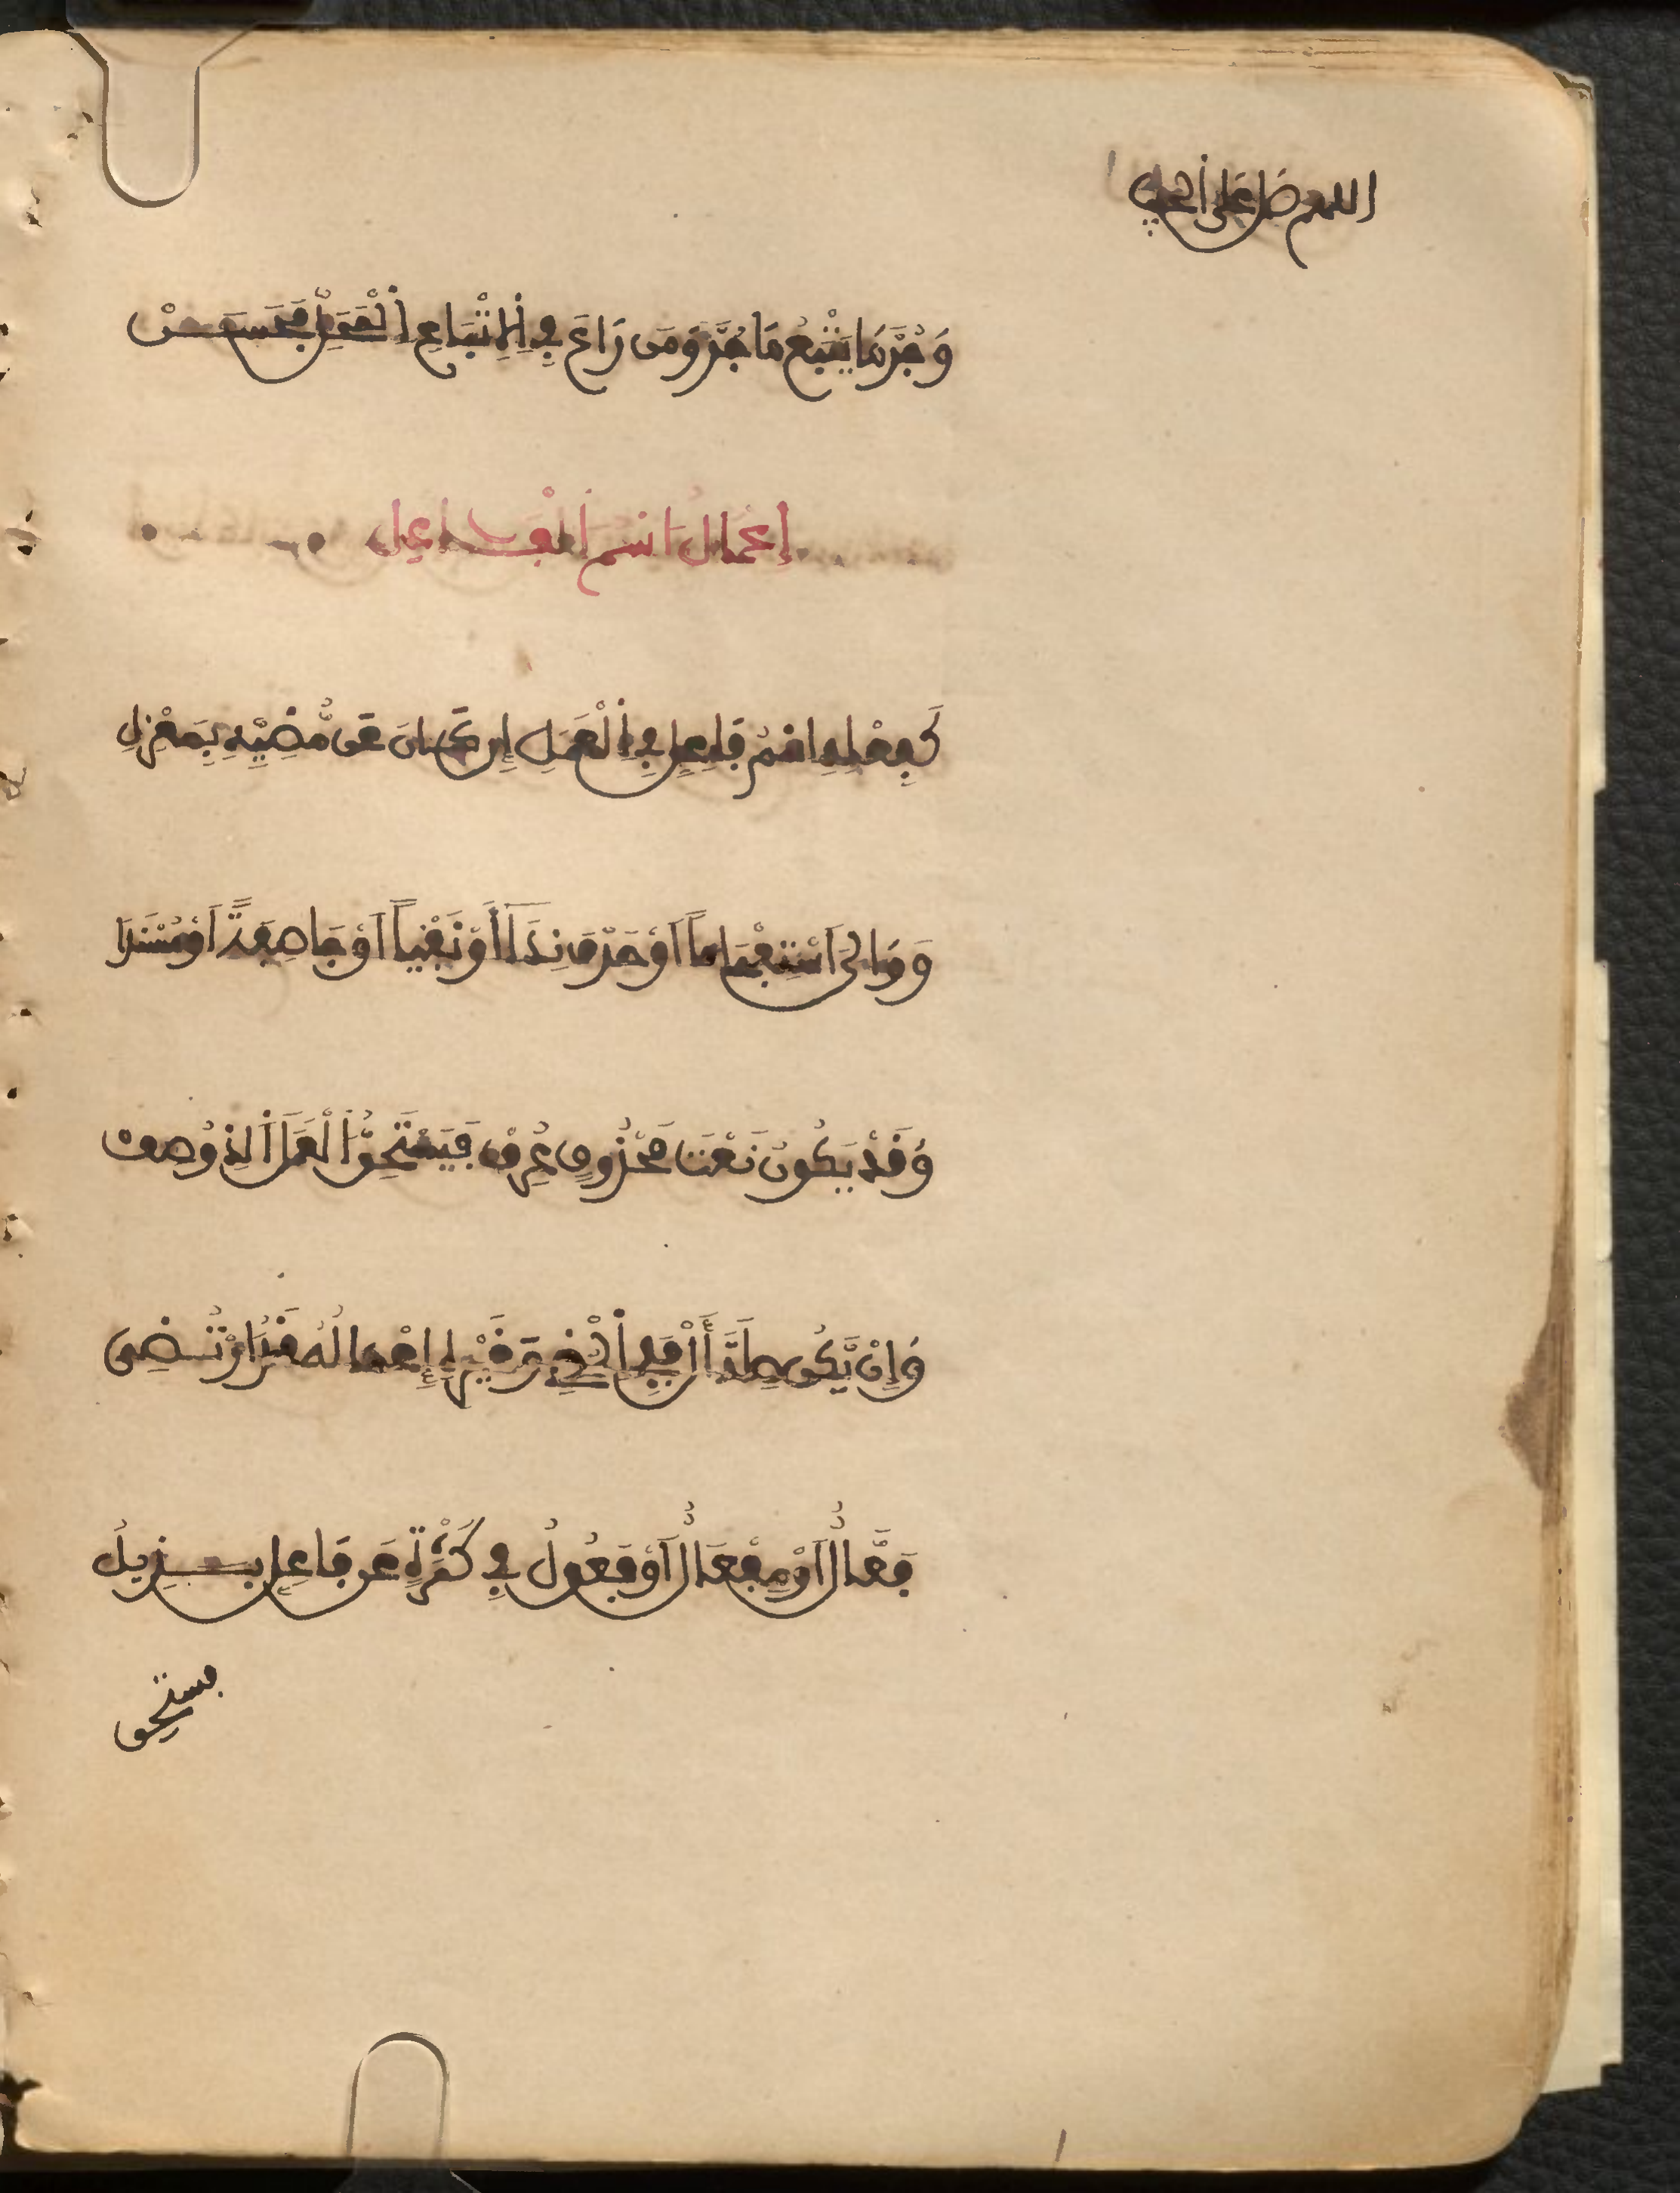 اللهم صل على الحبيب
وَجُرَّ مَا يَتْبَعُ مَا جُرَّ وَمَن رَاعَى فِي الِاتْبَاعِ الْمَحَلَّ فَحَسَنْ
إعْمَالُ اسْمِ الْفَاعِلِ
كَفِعْلِهِ اسْمُ فَاعِلٍ فِي الْعَمَلِ إِن كَانَ عَن مُّضِيِّهِ بِمَعْزِلِ
وَوَلِيَ اسْتِفْهَاماً اَوْ حَرْفَ نِدَا أَوْ نَفْياً اَوْ جَا صِفَةً اَوْ مُسْنَدَا
وَقَدْ يَكُونُ نَعْتَ مَحْذُوفٍ عُرِفْ فَيَسْتَحِقُّ الْعَمَلَ الَّذِي وُصِفْ
وَإِنْ يَّكُن صِلَةَ أَلْ فَفِي الْمُضِي وَغَيْرِهِ إِعْمَالُهُ قَدُ ارْتُضِي
فَعَّالٌ اَوْ مِفْعَالٌ اَوْ فَعُولُ فِي كَثْرَةٍ عَن فَاعِلٍ بَدِيلُ
يستحق